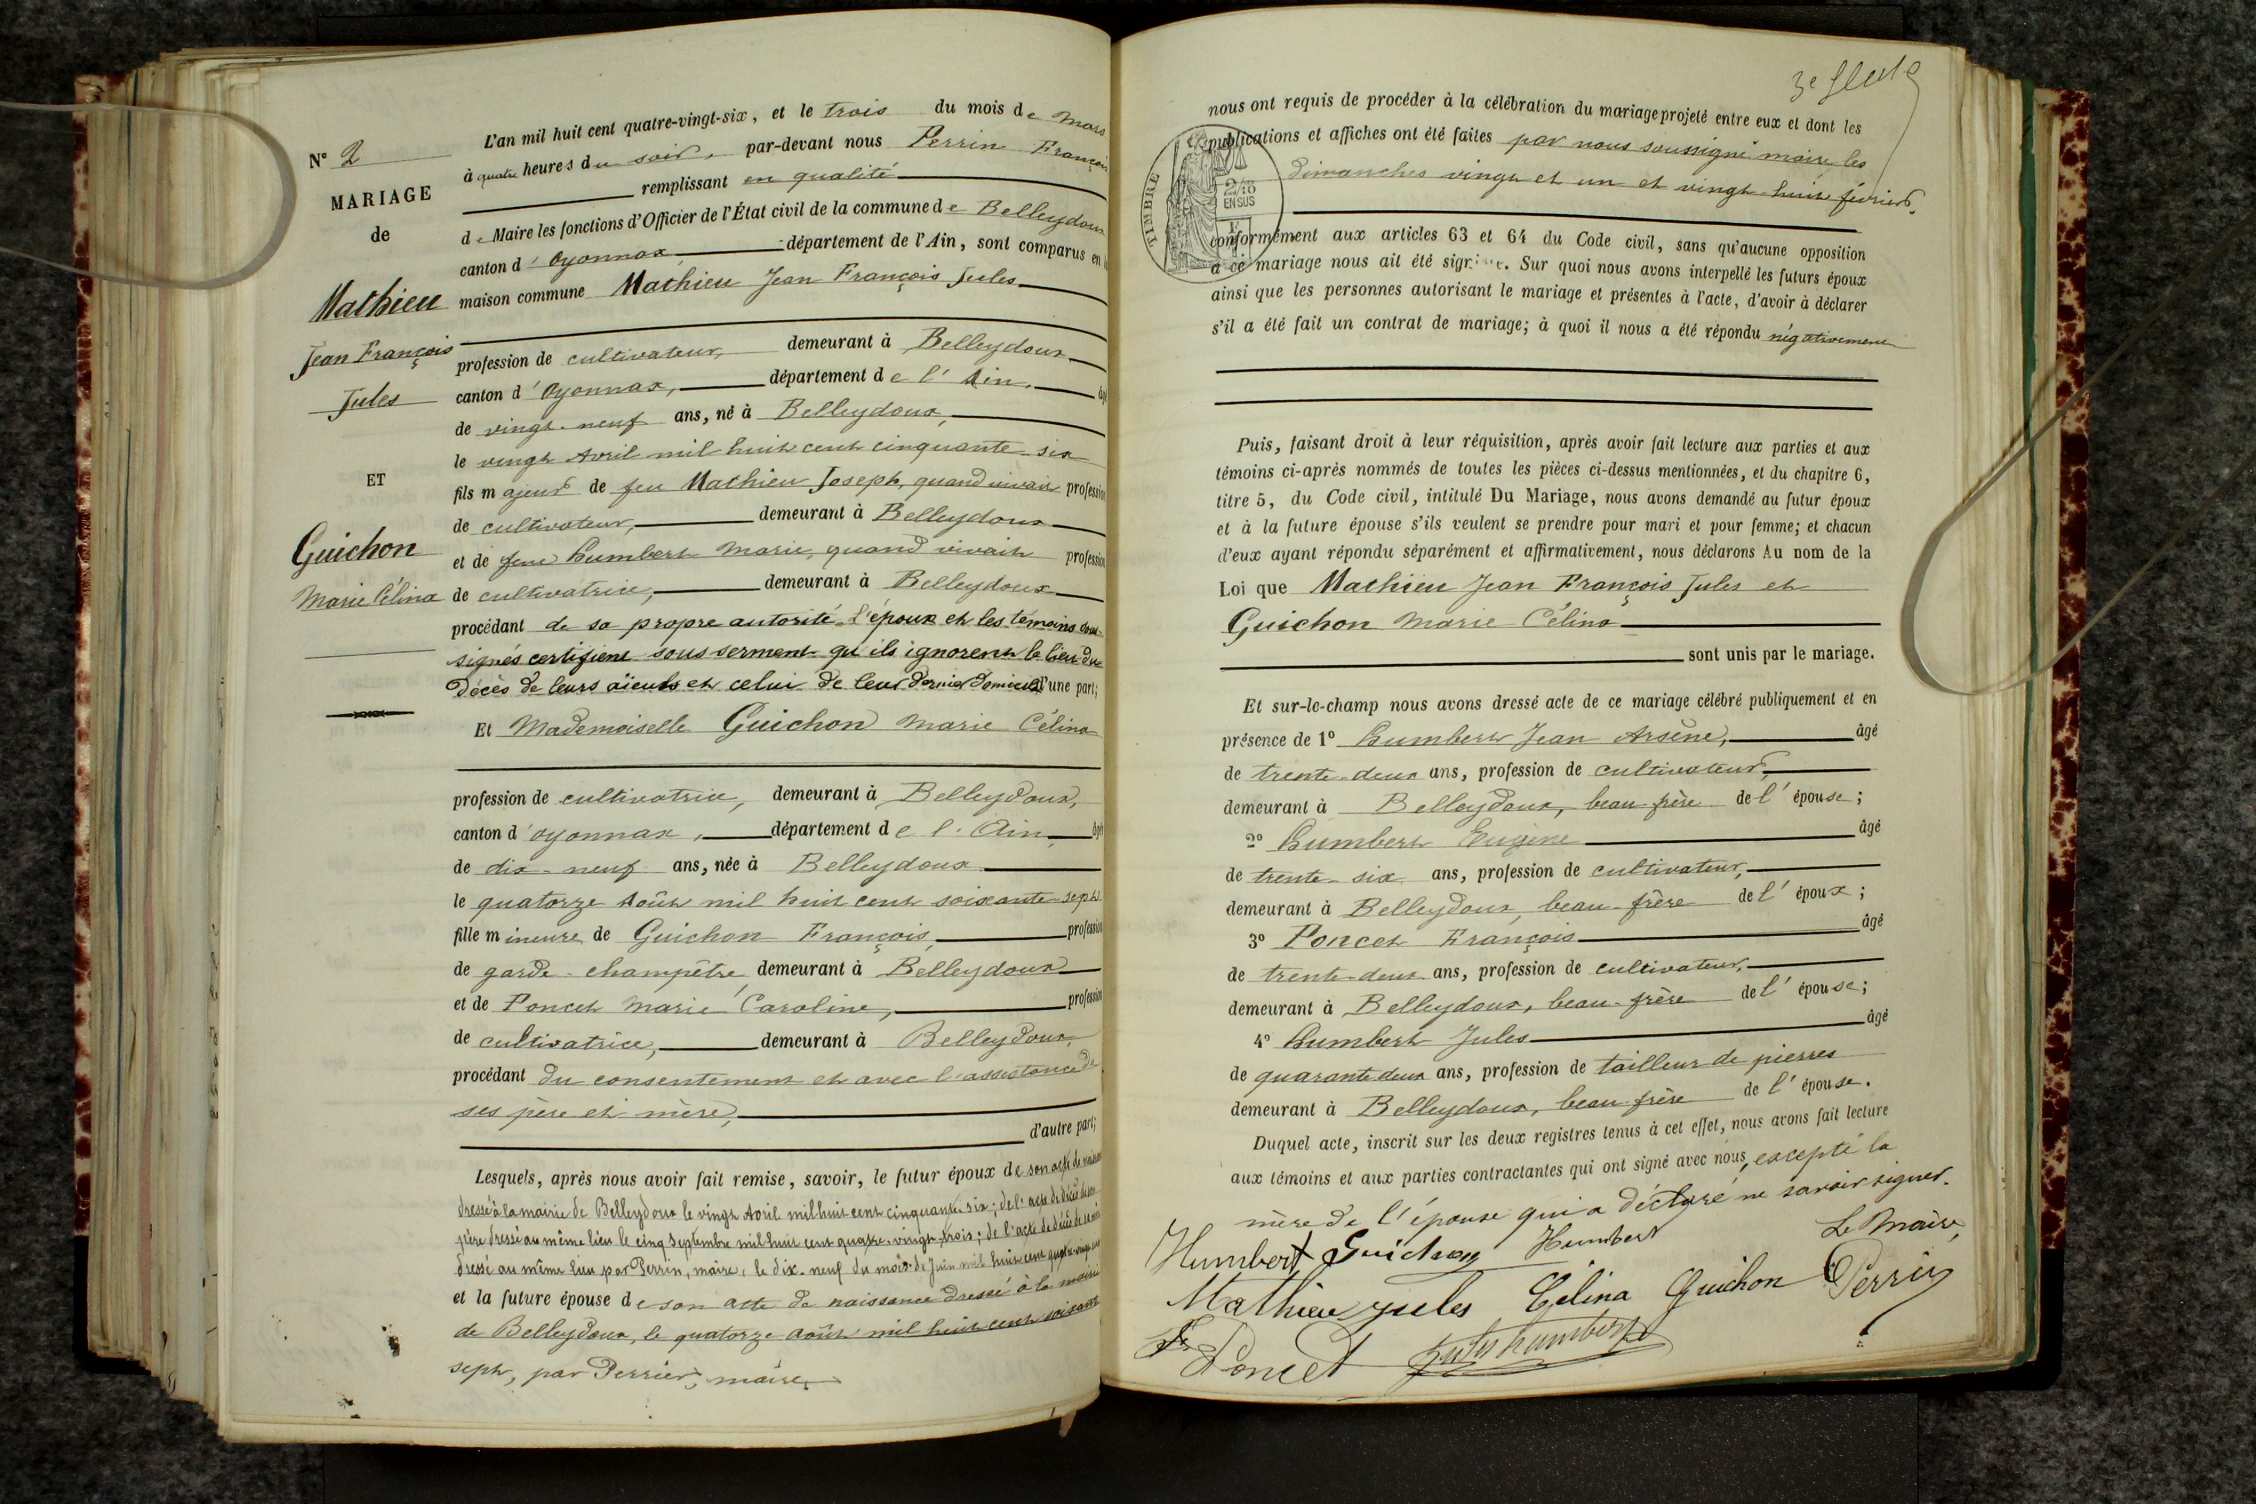 N° 2
MARIAGE
de
Mathieu
Jean François
Jules
ET
Guichon
Marie Célina
L'an mil huit cent quatre-vingt-six, et le trois du mois de Mars
à quatre heures du soir, par-devant nous Perrin François
remplissant en qualité
de Maire les fonctions d'Officier de l'État civil de la commune de Belleydoux
canton d'Oyonnax, département de l'Ain, sont comparus en la
maison commune Mathieu Jean François Jules
profession de cultivateur, demeurant à Belleydoux
canton d'Oyonnax, département de l'Ain, âgé
de vingt-neuf ans, né à Belleydoux,
le vingt Avril mil huit cent cinquante-six
fils majeur de feu Mathieu Joseph, quand vivait profession
de cultivateur, demeurant à Belleydoux
et de feue Humbert Marie, quand vivait profession
de cultivatrice, demeurant à Belleydoux
procédant de sa propre autorité. L'époux et les témoins sous-
signés certifient sous serment qu'ils ignorent le lieu du
décès de leurs aïeuls et celui de leur dernier domicile d'une part;
Et Mademoiselle Guichon Marie Célina
profession de cultivatrice, demeurant à Belleydoux,
canton d'Oyonnax, département de l'Ain, âgée
de dix-neuf ans, née à Belleydoux
le quatorze Août mil huit cent soixante-sept
fille mineure de Guichon François, profession
de garde-champêtre, demeurant à Belleydoux
et de Poncet Marie Caroline, profession
de cultivatrice, demeurant à Belleydoux,
procédant du consentement et avec l'assistance de
ses père et mère,
d'autre part;
Lesquels, après nous avoir fait remise, savoir, le futur époux de son acte de naissance
dressé à la mairie de Belleydoux le vingt Avril mil huit cent cinquante-six; de l'acte de décès de son
père dressé au même lieu le cinq Septembre mil huit cent quatre-vingt-trois; de l'acte de décès de sa mère
dressé au même lieu par Perrin, maire, le dix-neuf du mois de Juin mil huit cent quatre-vingt
et la future épouse de son acte de naissance dressé à la mairie
de Belleydoux, le quatorze août mil huit cent soixante
sept, par Perrier, maire,
3e
nous ont requis de procéder à la célébration du mariage projeté entre eux et dont les
publications et affiches ont été faites par nous soussigné maire les
dimanches vingt et un et vingt-huit février,
TIMBRE
2/10
EN SUS
conformément aux articles 63 et 64 du Code civil, sans qu'aucune opposition
à ce mariage nous ait été signifiée. Sur quoi nous avons interpellé les futurs époux
ainsi que les personnes autorisant le mariage et présentes à l'acte, d'avoir à déclarer
s'il a été fait un contrat de mariage; à quoi il nous a été répondu négativement
Puis, faisant droit à leur réquisition, après avoir fait lecture aux parties et aux
témoins ci-après nommés de toutes les pièces ci-dessus mentionnées, et du chapitre 6,
titre 5, du Code civil, intitulé Du Mariage, nous avons demandé au futur époux
et à la future épouse s'ils veulent se prendre pour mari et pour femme; et chacun
d'eux ayant répondu séparément et affirmativement, nous déclarons Au nom de la
Loi que Mathieu Jean François Jules et
Guichon Marie Célina
sont unis par le mariage.
Et sur-le-champ nous avons dressé acte de ce mariage célébré publiquement et en
présence de 1° Humbert Jean Arsène, âgé
de trente-deux ans, profession de cultivateur,
demeurant à Belleydoux, beau frère de l'épouse;
2° Humbert Eugène âgé
de trente-six ans, profession de cultivateur,
demeurant à Belleydoux, beau-frère de l'époux;
3° Poncet François âgé
de trente-deux ans, profession de cultivateur,
demeurant à Belleydoux, beau-frère de l'épouse;
4° Humbert Jules âgé
de quarante deux ans, profession de tailleur de pierres
demeurant à Belleydoux, beau-frère de l'épouse.
Duquel acte, inscrit sur les deux registres tenus à cet effet, nous avons fait lecture
aux témoins et aux parties contractantes qui ont signé avec nous, excepté la
mère de l'épouse qui a déclaré ne savoir signer.
Humbert Guichon Humbert Le Maire,
Mathieu Jules Célina Guichon Perrin
Poncet Jules humbert